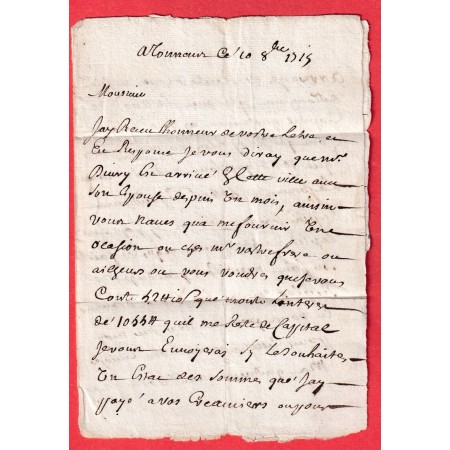 A Tonneur Ce 10 8bre 1715
Monsieur
Jay Receu lhonneur de vostre Letre et
En Response Je vous diray que mr
Divry Est arrivé En Cette ville avec
Son Epouse despuis Un mois, ainsin
vous Naves qua me fournir Une
ocasion ou ches mr vostre frere ou
ailleurs ou vous voudres que je vous
Conte 52# 10s que monte
de 1055# quil me Reste de Capital
Je vous Envoyerai sy Le souhaites
Un Estat des sommes que Jay
payé a vos Creansiers